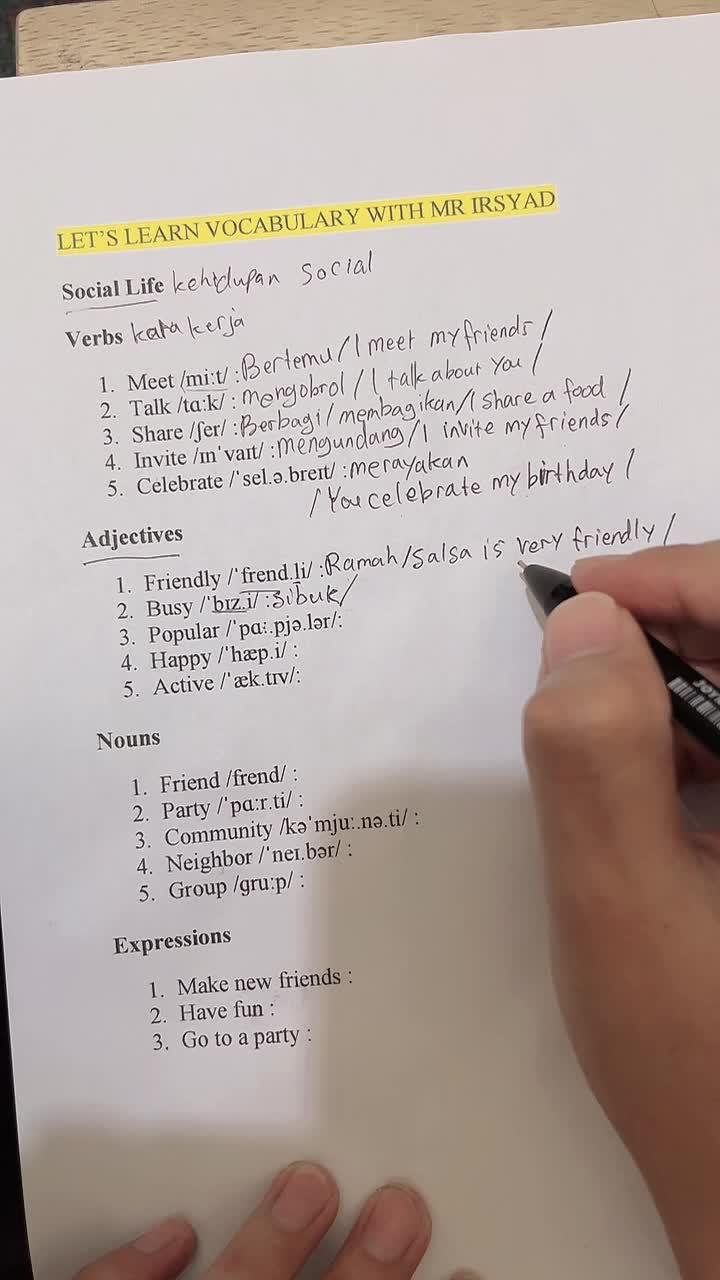 LET'S LEARN VOCABULARY WITH MR IRSYAD
Social Life kehidupan social
Verbs kata kerja
1. Meet /miːt/ : Bertemu / I meet my friends /
2. Talk /tɑːk/ : mengobrol / I talk about You /
3. Share /ʃer/ : Berbagi / membagikan / I share a food /
4. Invite /ɪnˈvaɪt/ : mengundang / I invite my friends /
5. Celebrate /ˈsel.ə.breɪt/ : merayakan
/ You celebrate my birthday /
Adjectives
1. Friendly /ˈfrend.li/ : Ramah / Salsa is very friendly /
2. Busy /ˈbɪz.i/ : Sibuk /
3. Popular /ˈpɑː.pjə.lər/:
4. Happy /ˈhæp.i/ :
5. Active /ˈæk.tɪv/:
Nouns
1. Friend /frend/ :
2. Party /ˈpɑːr.ti/ :
3. Community /kəˈmjuː.nə.ti/ :
4. Neighbor /ˈneɪ.bər/ :
5. Group /ɡruːp/ :
Expressions
1. Make new friends :
2. Have fun :
3. Go to a party :